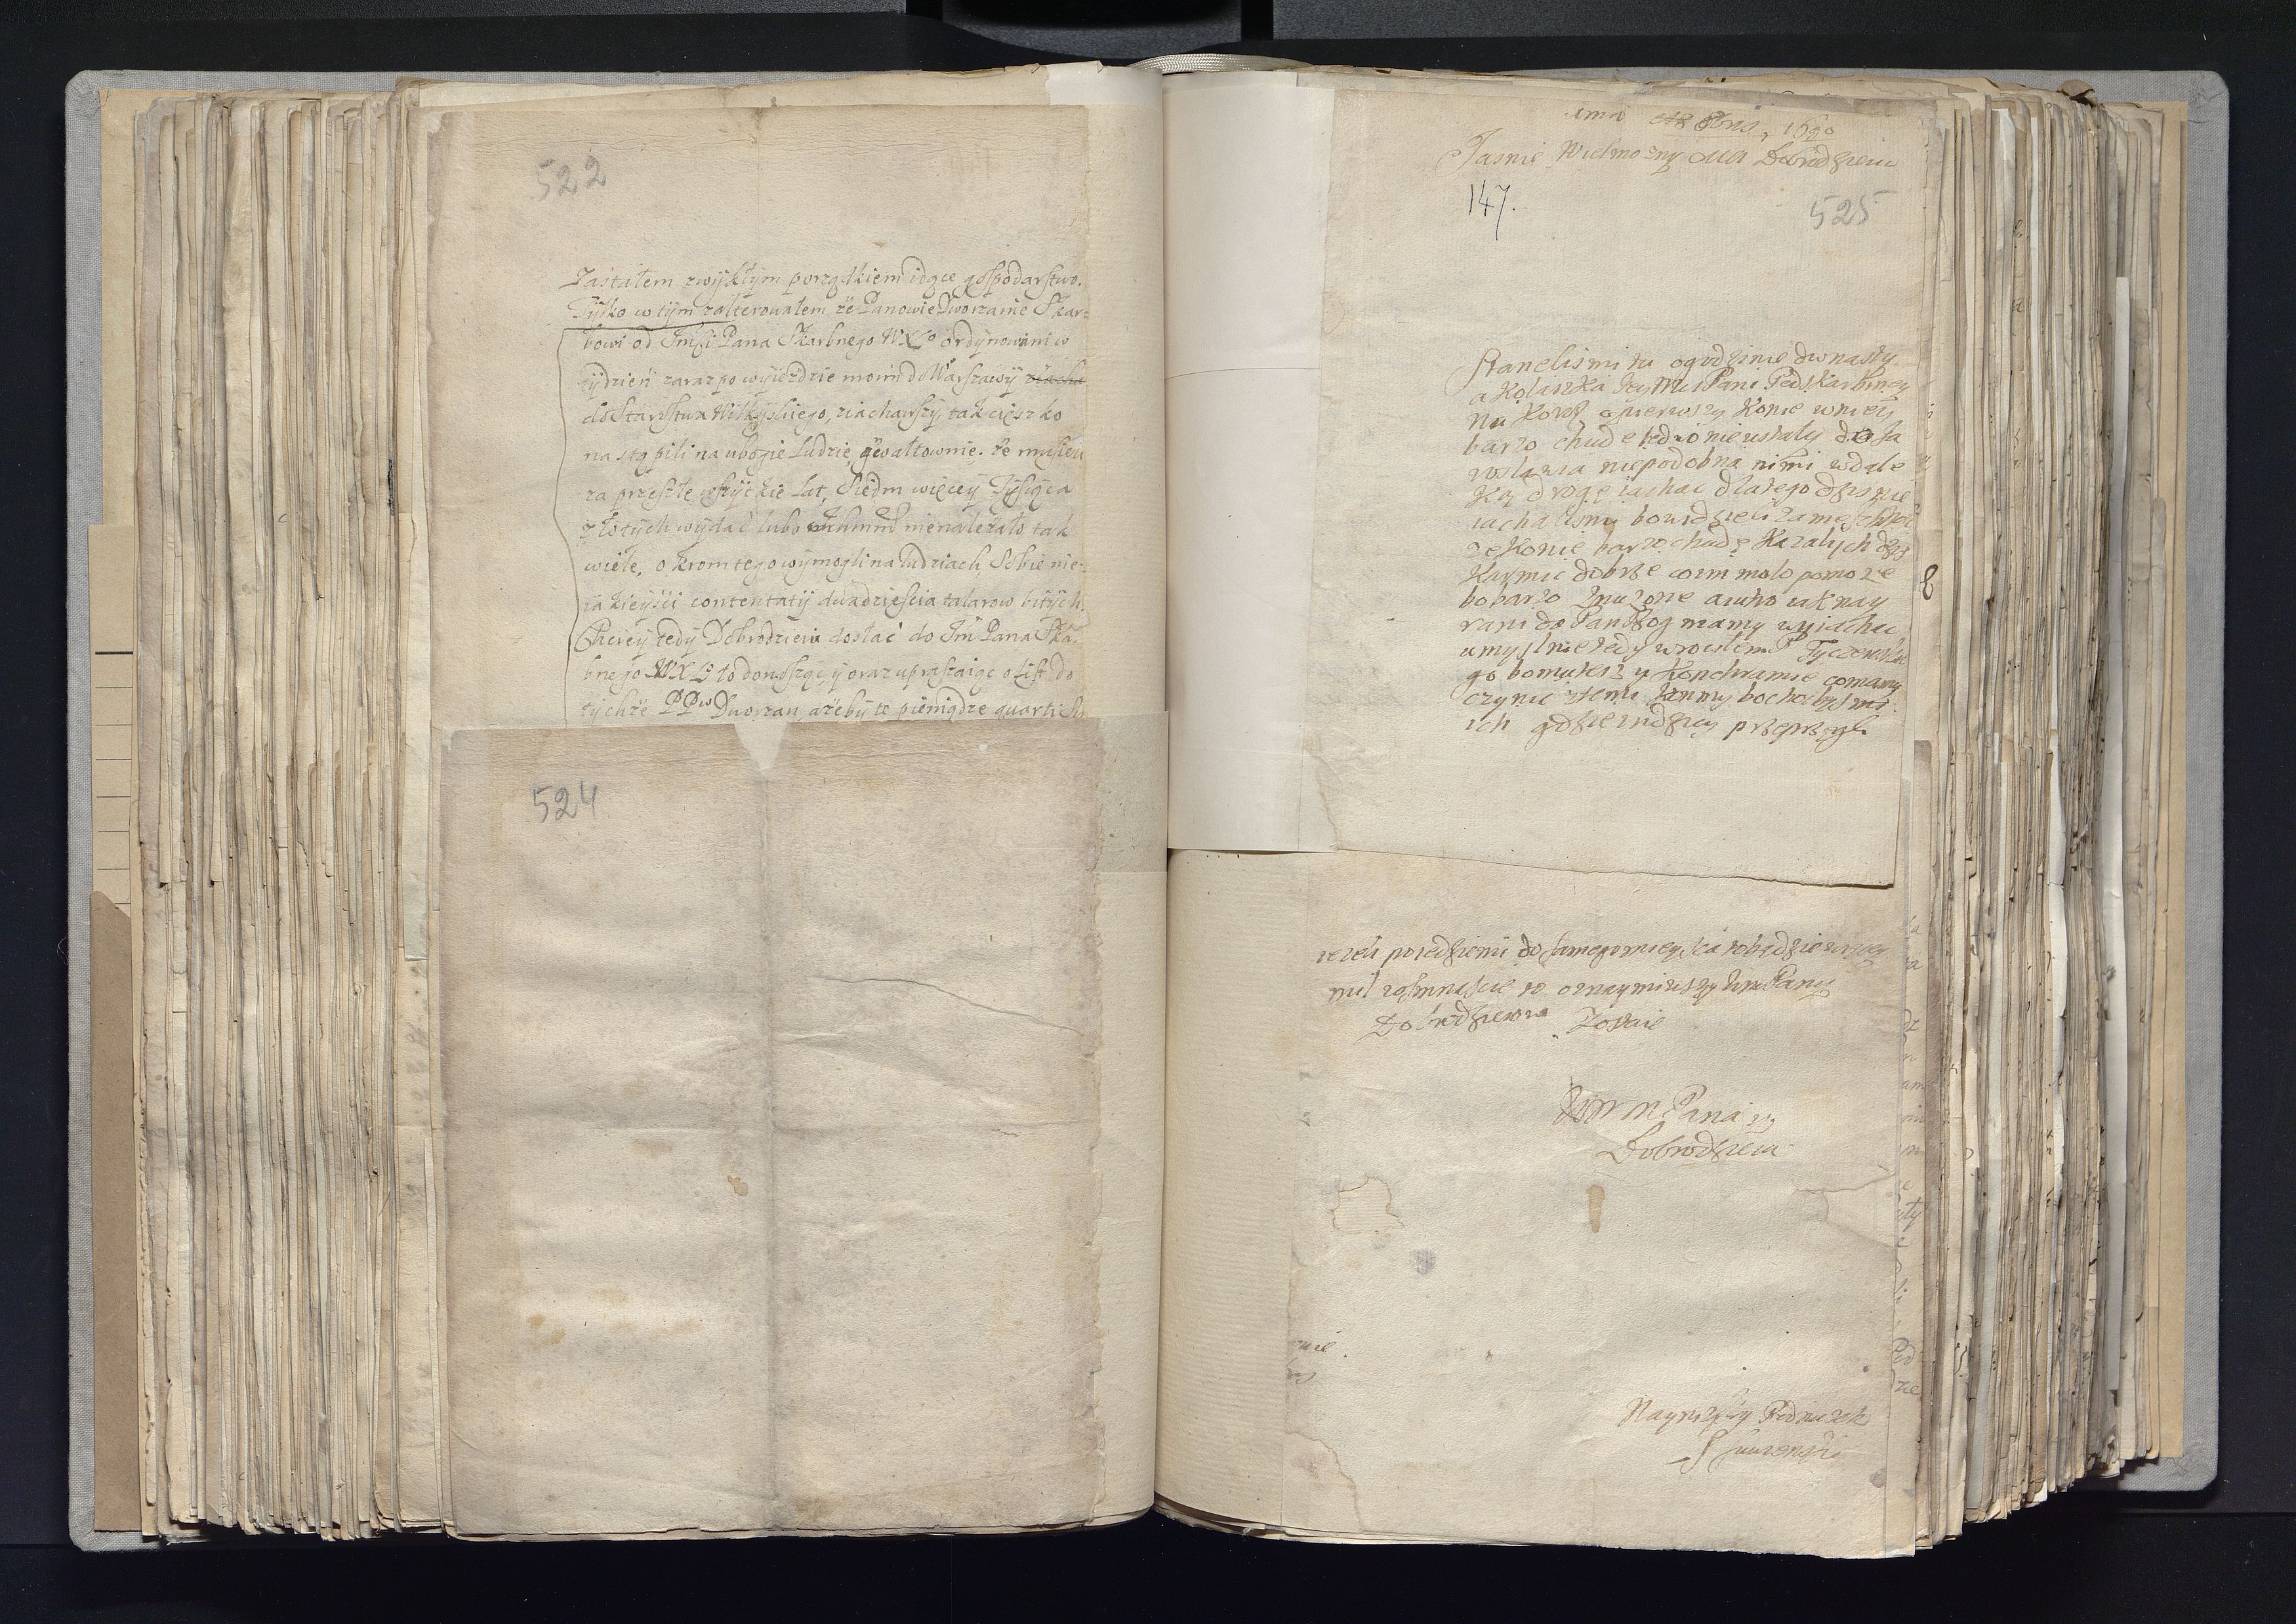 522
Zastałem zwykłym porządkiem idące gospodarstwo.
Tylko w tym zalterowałem że Panowie Dworzanie Skar=
bowi od Imści Pana Skarbnego WXo ordynowani w
tydzień zaraz po wyiezdzie moim do Warszawy ziacha
do Starostwa Wilkyskiego, ziachawszy tak cięszko
nastąpili na ubogie Ludzie gwałtownie. że musieli
za przeszłe wszyckie Lat, Siedm więcey Tysiąca
złotych wydać lubo nienależało tak
wiele, okrom tego wymogli na ludziach Sobie nie=
iakieyści contentatiy dwadziescia talarow bitych
Chciey tedy Dobrodzieiu dosłać do Im Pana Ska
bnego WXL to donosząc, y oraz upraszaiąc o List do
tychże PPw Dworzan, ażeby te pieniądze quarti
524
1690
Jasnie Wielmozny Dobrodzieiu
147.
525
Stanelismi tu ogodzinie dwnasty
a Kolaszka Pani Podskarbiney
na pierwszy Konie wniey
barzo chude ledwo nie ustały do Ja
rosławia niepodobna nimi wdale
ką drogę iachac dlatego dzis nie
iachalismy bo widzieli
ze Konie barzo chude Kazali ich dzis
Karmic dobrze co im malo pomoze
bo barzo znuzone a iutro iak nay
rani da Pan Bog mamy wyiachac
umyslnie tedy wrocilem P Tyczensk
go bomutesz y Konchramie comamy
czynic stemi konmy bo chocbysmi
ich gdzie indziey przeprzęgli
iezeli poiedziemi do samego
mil zosmnascie to oznaymiwszy Pany
Dobrodziewu Zostaie
WM Pana y
Dobrodzieia
Naynizszy Podnuzek